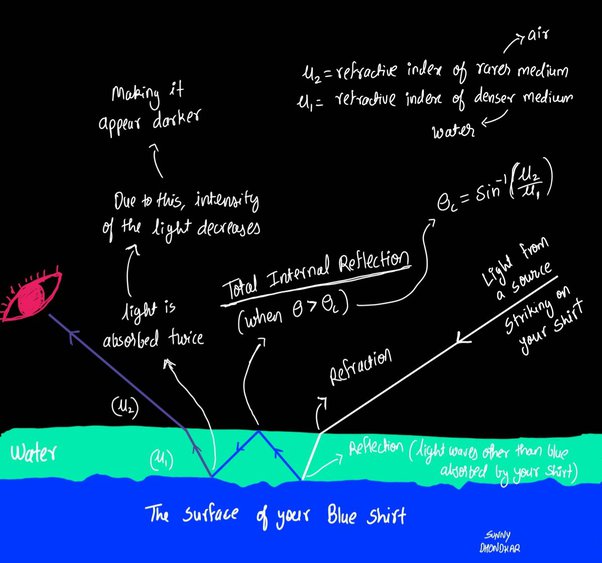 air
μ₂ = refractive index of rarer medium
μ₁ = refractive index of denser medium
water
Making it
appear darker
Due to this, intensity
of the light decreases
light is
absorbed twice
Total Internal Reflection
(when θ > θc)
θc = sin⁻¹(μ₂/μ₁)
Light from
a source
striking on
your shirt
Refraction
(μ₂)
Water
(μ₁)
Reflection (light waves other than blue
absorbed by your shirt)
The surface of your Blue shirt
SUNNY
DHONDKAR